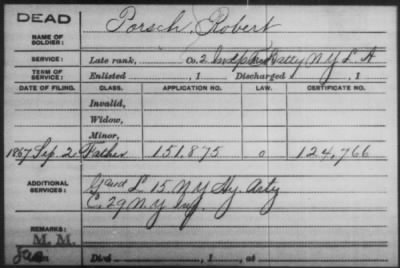 DEAD
NAME OF SOLDIER: Porsch, Robert
SERVICE: Late rank, Co. 2. Indpt Batty N Y L A
TERM OF SERVICE: Enlisted , 1 Discharged , 1
DATE OF FILING. CLASS. APPLICATION NO. LAW. CERTIFICATE NO.
Invalid,
Widow,
Minor,
1867 Sep. 2. Father 151,875 0 124,766
ADDITIONAL SERVICES: G and L 15 N Y Hy. Arty
C. 29 N. Y. Inf.
REMARKS:
M. M.
Died , 1 , at